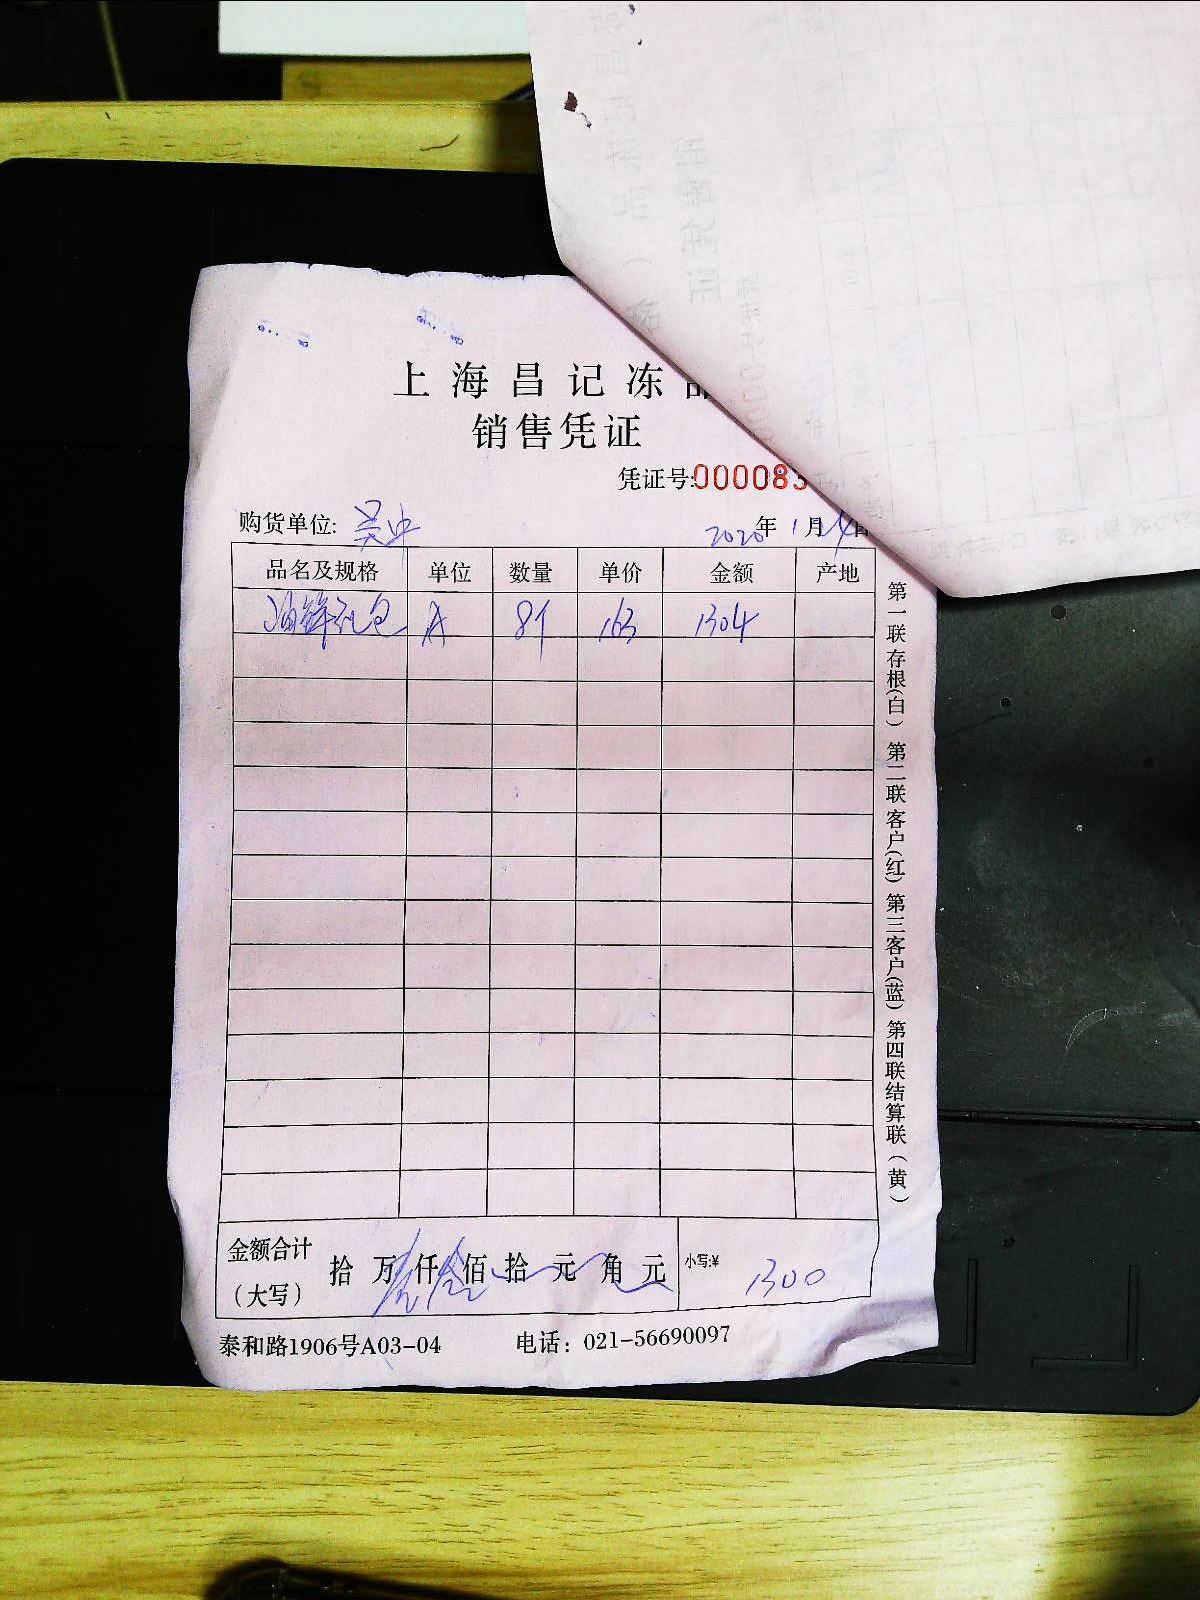 上海昌记冻品
销售凭证
凭证号:000083
购货单位: 吴中 2020年1月14日
品名及规格 单位 数量 单价 金额 产地
海鲜礼包 A 8个 163 1304
金额合计
(大写)
拾万壹仟叁佰拾元角元 小写:¥ 1300
泰和路1906号A03-04 电话: 021-56690097
第一联存根(白) 第二联客户(红) 第三客户(蓝) 第四联结算联(黄)